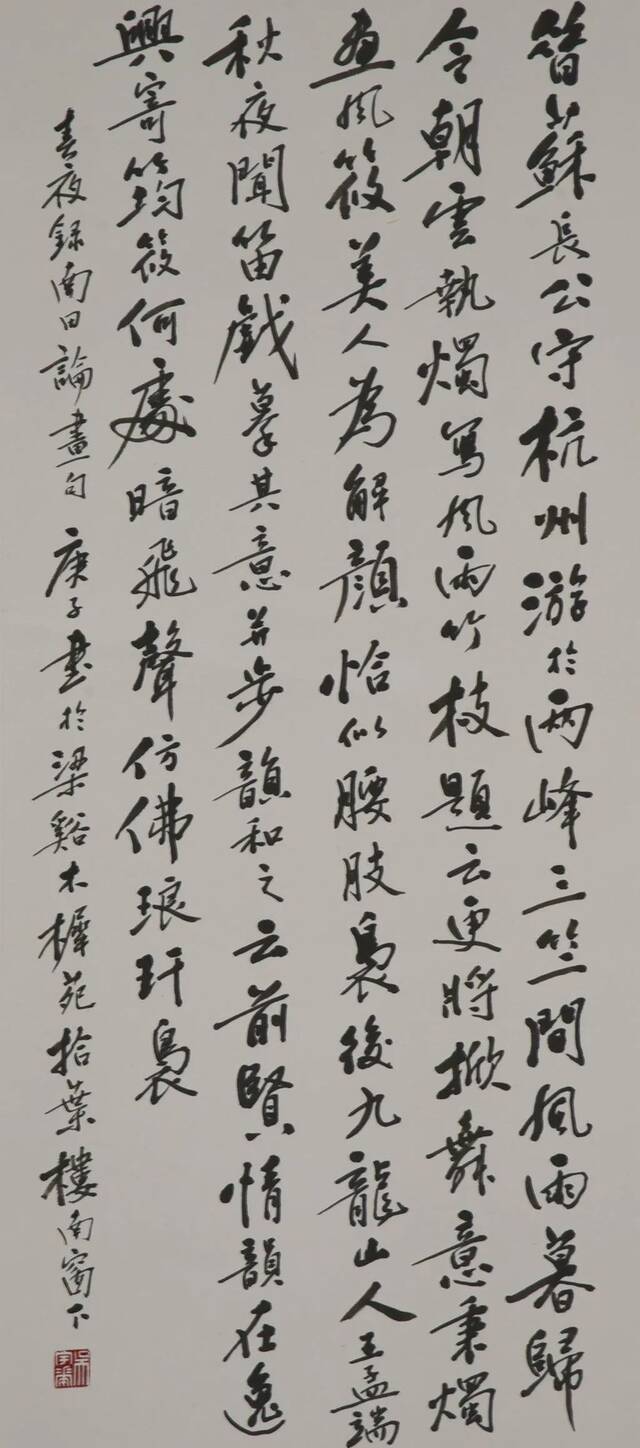 昔蘇長公守杭州游於兩峰三竺間風雨暮歸
令朝雲執燭寫風雨竹枝題云更將掀舞意秉燭
畫風筱美人為解顏恰似腰肢裊後九龍山人王孟端
秋夜聞笛戲摹其意并步韻和之云前賢情韻在逸
興寄筠筱何處暗飛聲仿佛琅玕裊
春夜録南田論畫句庚子書於梁谿木樨苑拾葉樓南窗下